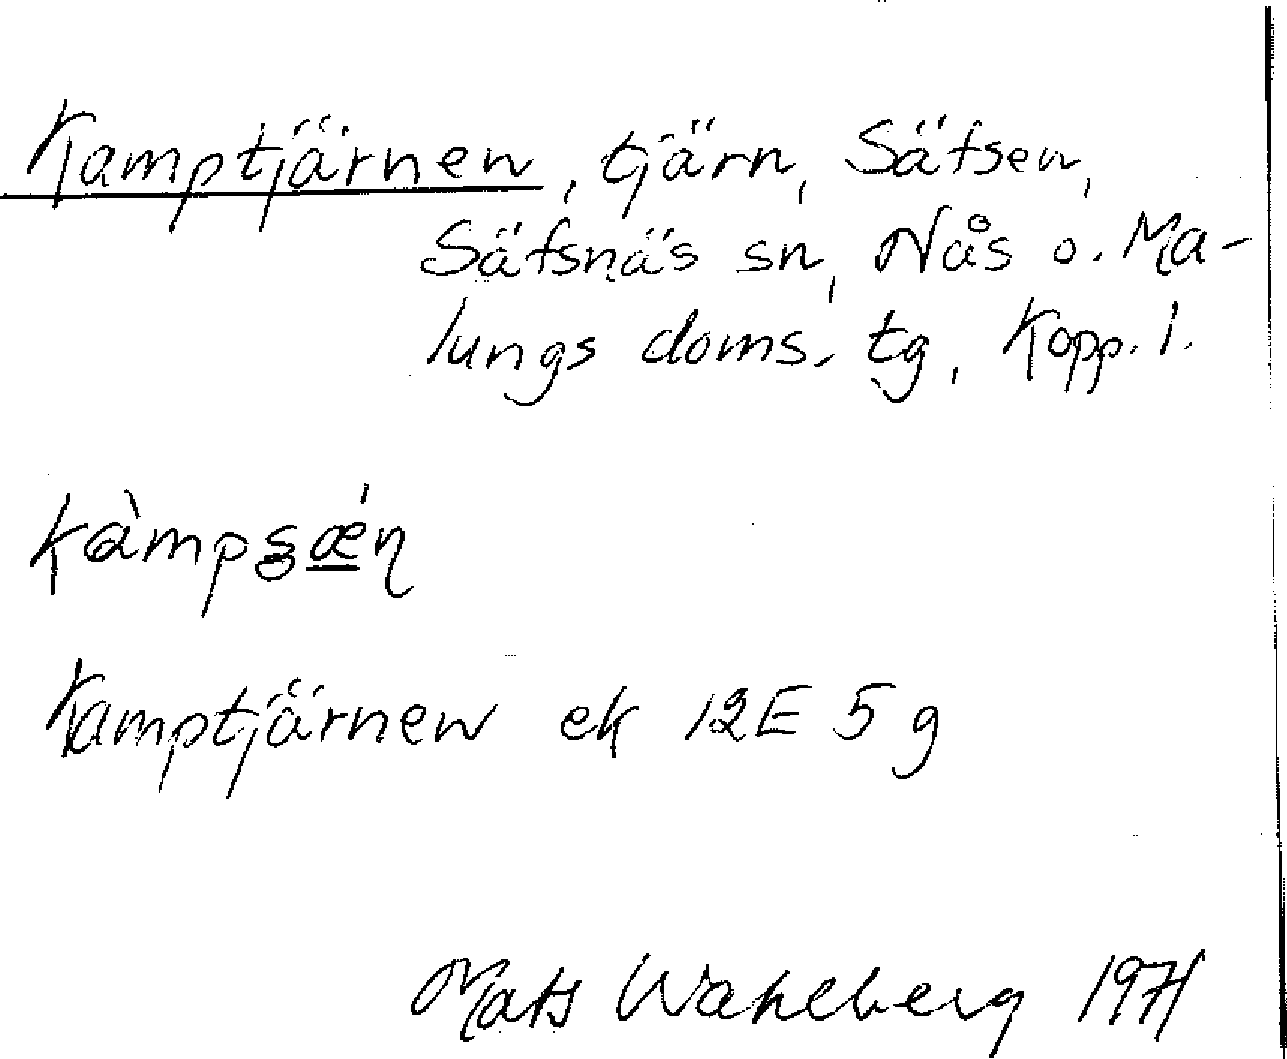 Kamptjärnen, tjärn, Säfsen,
Säfsnäs sn, Nås o. Ma-
lungs doms. tg, Kopp. l.
Kamptjärnen ek 12E 5g
Mats Wahlberg 1971